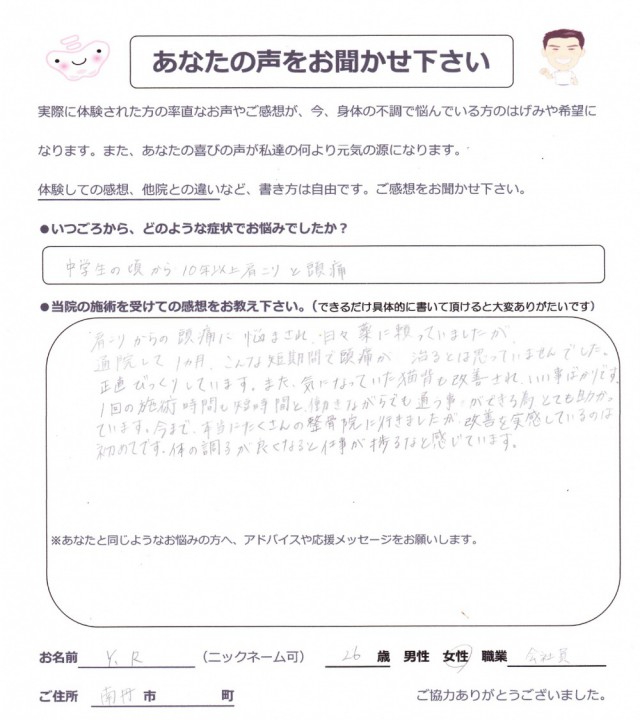 あなたの声をお聞かせ下さい
実際に体験された方の率直なお声やご感想が、今、身体の不調で悩んでいる方のはげみや希望に
なります。また、あなたの喜びの声が私達の何より元気の源になります。
体験しての感想、他院との違いなど、書き方は自由です。ご感想をお聞かせ下さい。
●いつごろから、どのような症状でお悩みでしたか？
中学生の頃から10年以上肩こりと頭痛
●当院の施術を受けての感想をお教え下さい。（できるだけ具体的に書いて頂けると大変ありがたいです）
肩こりからの頭痛に悩まされ、日々薬に頼っていましたが
通院して1ヵ月、こんな短期間で頭痛が治るとは思っていませんでした。
正直びっくりしています。また、気になっていた猫背も改善され、いい事ばかりです。
1回の施術時間も短時間と、働きながらでも通う事ができる為とても助かっ
ています。今まで、本当にたくさんの整骨院に行きましたが、改善を実感しているのは
初めてです。体の調子が良くなると仕事が捗るなと感じています。
※あなたと同じようなお悩みの方へ、アドバイスや応援メッセージをお願いします。
お名前 Y.R （ニックネーム可） 26 歳 男性 女性 職業 会社員
ご住所 南丹 市 町 ご協力ありがとうございました。